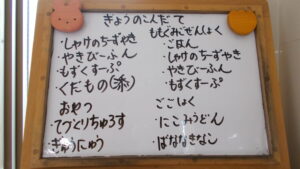 きょうのこんだて
・しゃけのちーずやき
・やきびーふん
・もずくすーぷ
・くだもの(添)
おやつ
・てづくりちゅろす
・ぎゅうにゅう
ももぐみごぜんしょく
・ごはん
・しゃけのちーずやき
・やきびーふん
・もずくすーぷ
ごごしょく
・にこみうどん
・ばななきなこ